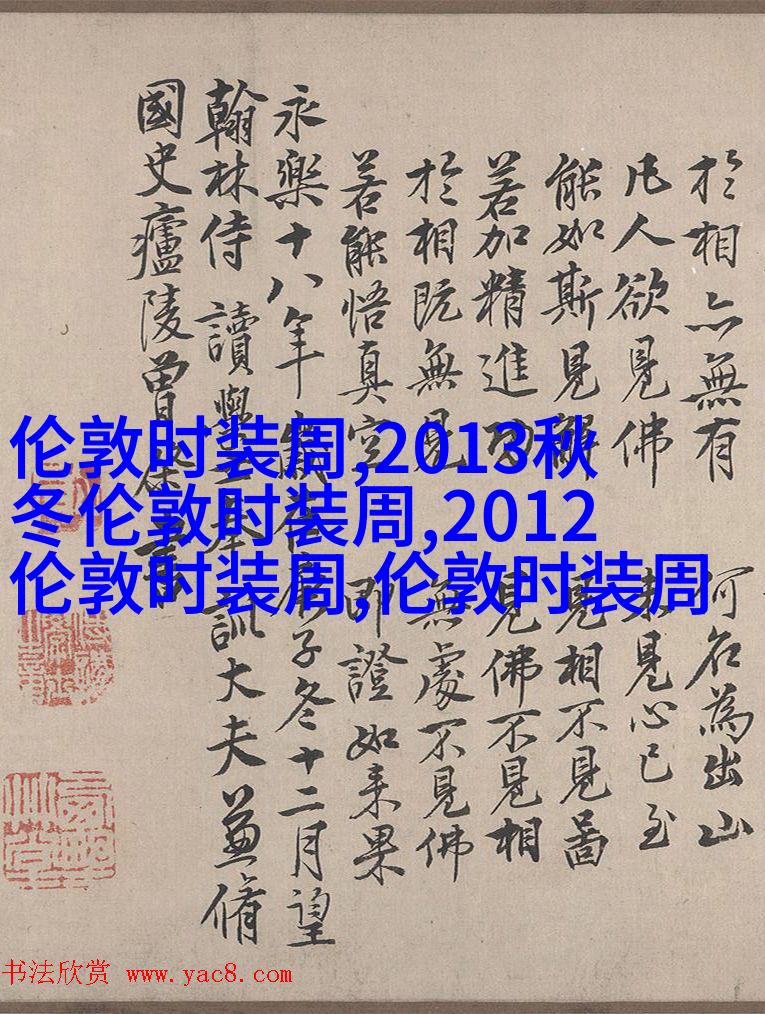 於相亦無有 何名為出山
凡人欲見佛 未見心已至
能如斯見解 見相不見啚
若加精進功 見佛不見相
於相既無見 無處不見佛
若能悟真空 即證如来果
永樂十八年歲在庚子冬十二月望
翰林侍讀學士奉訓大夫兼脩
國史廬陵曾棨書
伦敦时装周,2013秋
冬伦敦时装周,2012
伦敦时装周,伦敦时装周
书法欣赏 www.yac8.com